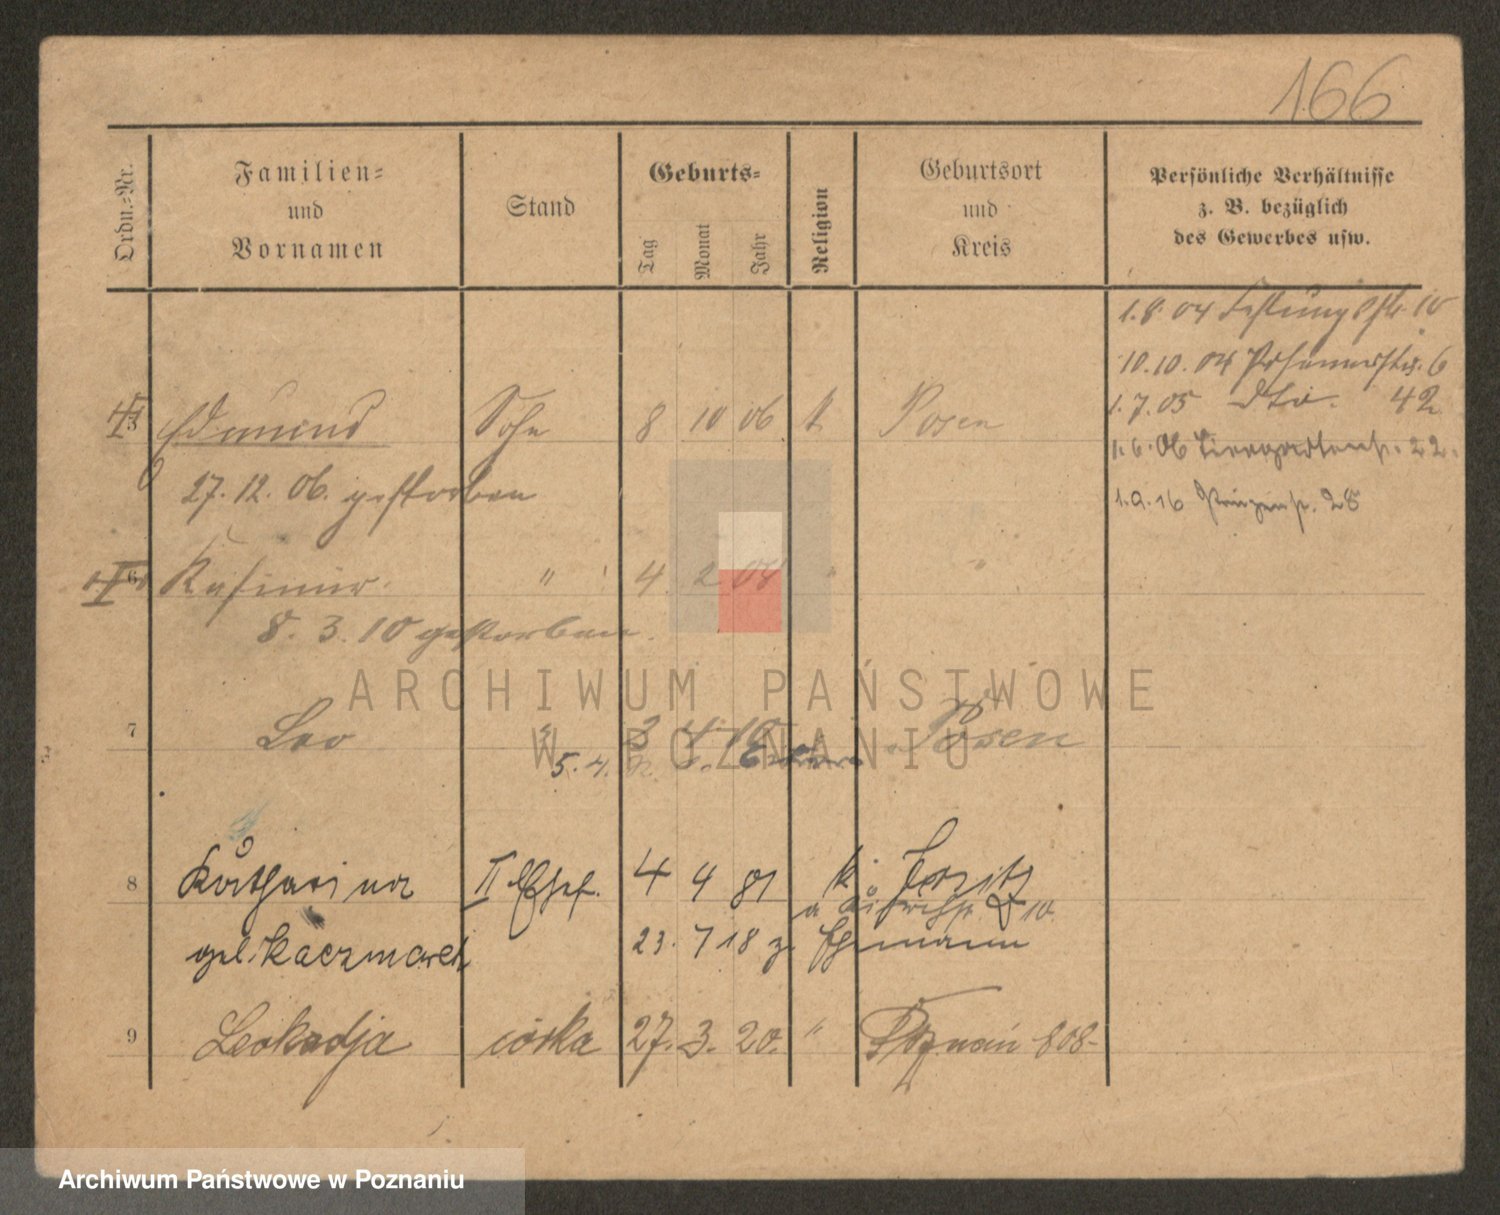 166
Ordn.-Nr.
Familien-
und
Vornamen
Stand
Geburts-
Tag
Monat
Jahr
Religion
Geburtsort
und
Kreis
Persönliche Verhältnisse
z. B. bezüglich
des Gewerbes usw.
1.8.04 Festungsstr. 10
10.10.04 6
1.7.05 dto. 42
1.6.06 Tiergartenstr. 22.
1.9.16 Prinzenstr. 28
Edmund Sohn 8 10 06 k Posen
27.12.06. gestorben
6 Kasimir " 4 2 08 " "
8.3.10 gestorben.
7 Leo " 3 4 10 Posen
5.4.
8 Katharina II Ehef. 4 4 81 k. Jersitz
geb. Kaczmarek 23. 7 18 z. Ehemann
9 Leokadja córka 27. 3. 20. " Poznań 808-
ARCHIWUM PAŃSTWOWE
W POZNANIU
Archiwum Państwowe w Poznaniu